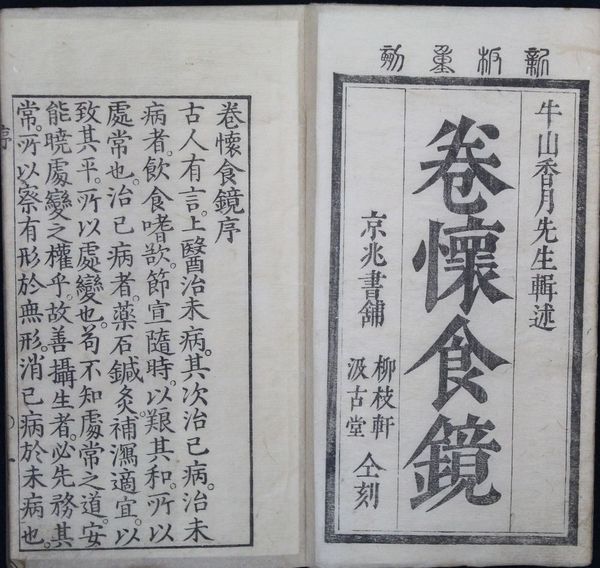 新板重刻
牛山香月先生輯述
卷懷食鏡
京兆書舖
柳枝軒
汲古堂
仝刻
卷懷食鏡序
古人有言。上醫治未病。其次治已病。治未
病者。飲食嗜欲。節宣隨時。以艱其和。所以
處常也。治已病者。藥石鍼灸。補瀉適宜。以
致其平。所以處變也。苟不知處常之道。安
能曉處變之權乎。故善攝生者。必先務其
常。所以察有形於無形。消已病於未病也。